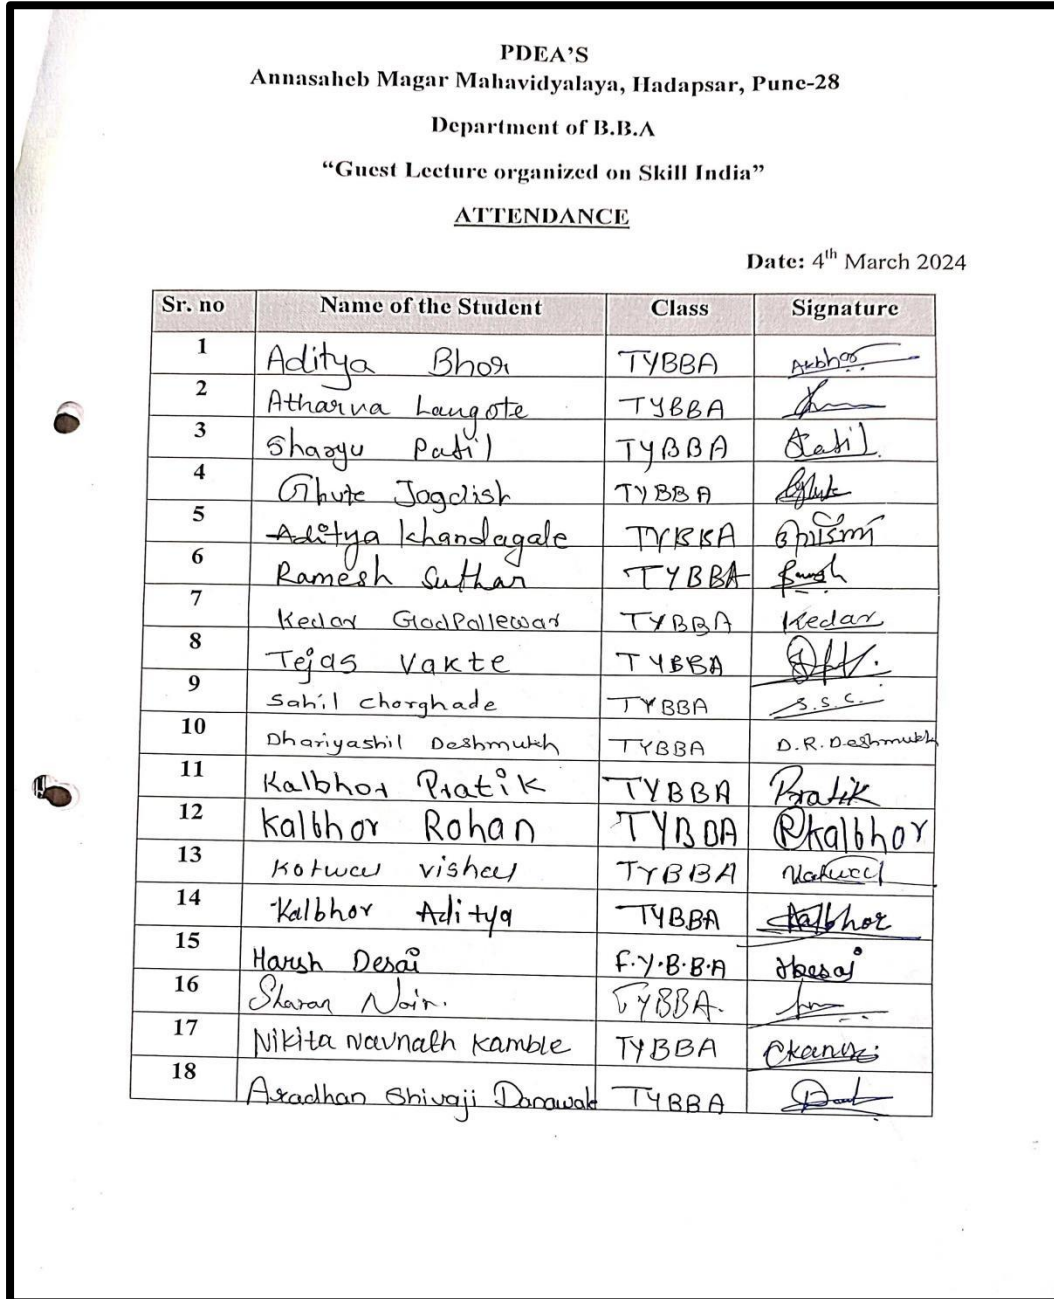 PDEA'S
Annasaheb Magar Mahavidyalaya, Hadapsar, Pune-28
Department of B.B.A
“Guest Lecture organized on Skill India”
ATTENDANCE
Date: 4th March 2024
Sr. no Name of the Student Class Signature
1 Aditya Bhor TYBBA
2 Atharva Langote TYBBA
3 Sharyu Patil TYBBA Patil
4 Ghute Jagdish TYBBA
5 Aditya Khandagale TYBBA
6 Ramesh Suthar TYBBA
7 Kedar Gadpallewar TYBBA Kedar
8 Tejas Vakte TYBBA
9 Sahil Chorghade TYBBA S.S.C.
10 Dhariyashil Deshmukh TYBBA D.R.Deshmukh
11 Kalbhor Pratik TYBBA Pratik
12 Kalbhor Rohan TYBBA Rkalbhor
13 Kotwal vishal TYBBA
14 Kalbhor Aditya TYBBA Aalbhor
15 Harsh Desai F.Y.B.B.A HDesai
16 Sharan Nair. TYBBA.
17 Nikita Navnath Kamble TYBBA
18 Aradhan Shivaji Danawale TYBBA